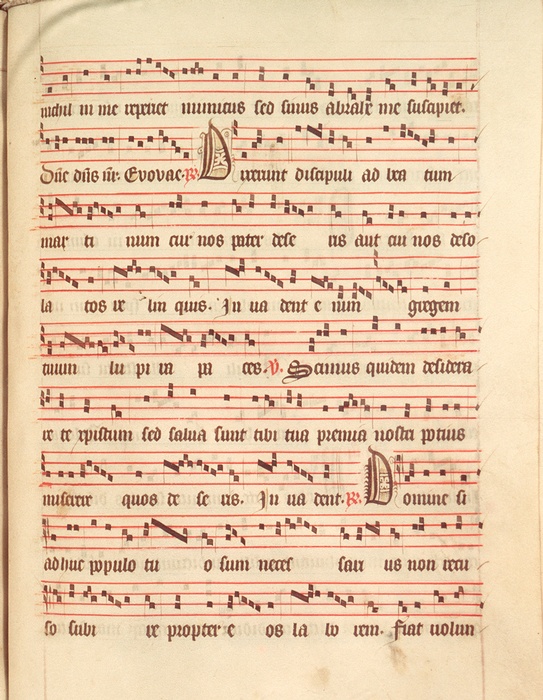 nichil in me reperiet inimicus sed sinus abrahe me suscipiet.
Dñe dñs nr̄. Evovae. R. Dixerunt discipuli ad bea tum
mar ti num cur nos pater dese ris aut cui nos deso
la tos re lin quis. In va dent e nim gregem
tuum lu pi ra pa ces. V. Scimus quidem desidera
re te xpistum sed salva sunt tibi tua premia nostri potius
miserere quos de se ris. In va dent. R. Domine si
adhuc populo tu o sum neces sari us non recu
so subi re propter e os la bo rem. Fiat volun